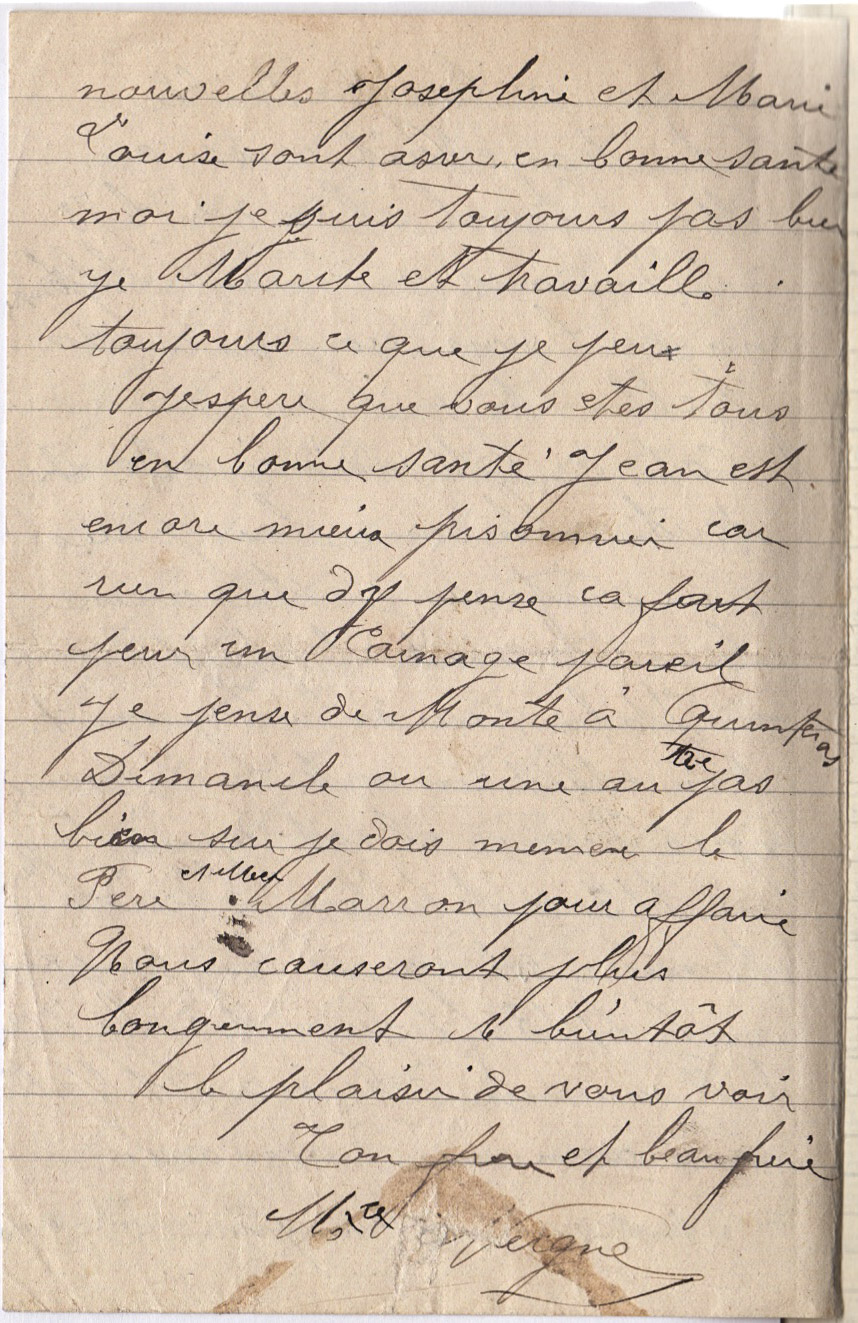 nouvelles Josephine et Marie
Louise sont asser en bonne sante
moi je suis toujours pas bien
je Marche et travaille
toujours ce que je peux
Jespere que vous etes tous
en bonne santé Jean est
encore mieux prisonnier car
rien que dy pense ca fait
peur un Carnage pareil
Je pense de Monte à Quintenas
Dimanche ou une autre pas
bien sur je dois mener le
Pere et Mere Marron pour affaire
Nous causeront plus
longuement à bientôt
le plaisir de vous voir
Ton frere et beau frere
Vergne